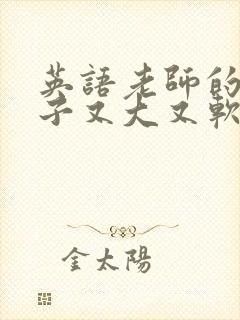 英語老師的
子又大又軟
金太陽